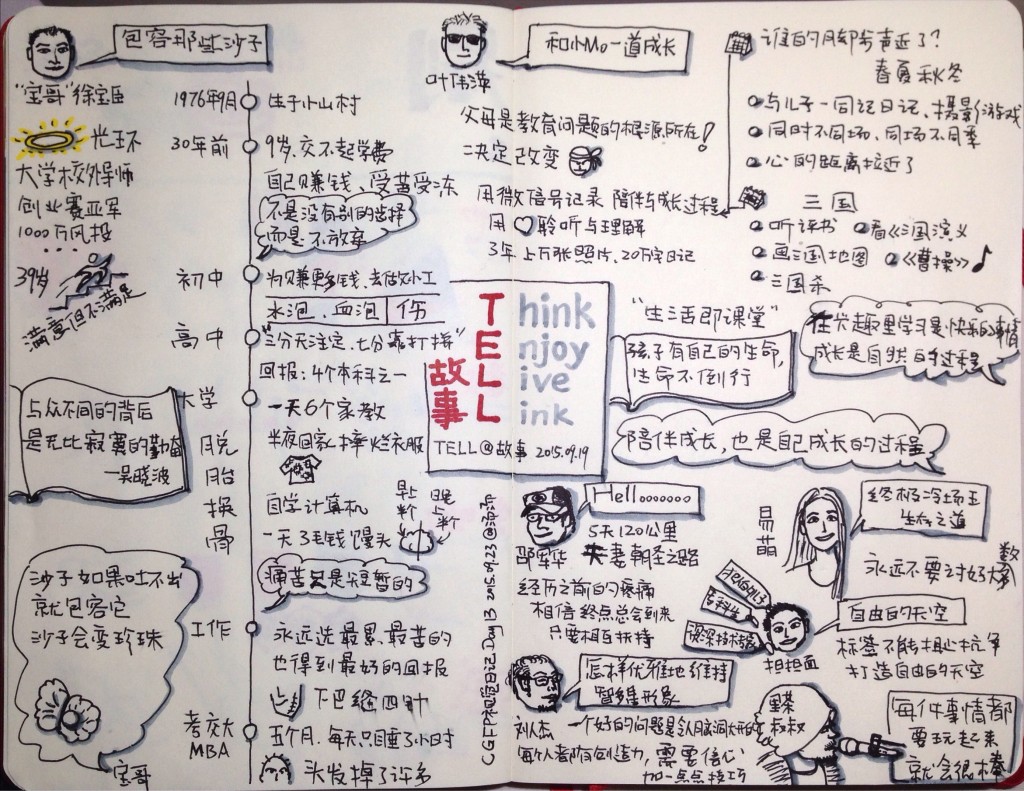 包容那些沙子
"宝哥"徐宝臣
光环
大学校外导师
创业赛亚军
1000万风投
...
39岁
满意但不满足
与众不同的背后
是无比寂寞的勤奋
—吴晓波
沙子如果吐不出
就包容它
沙子会变珍珠
宝哥
1976年9月
生于小山村
30年前
9岁，交不起学费
自己赚钱、受苦受冻
不是没有别的选择
而是不放弃
初中
为赚更多钱、去做小工
水泡、血泡 伤
高中
"三分天注定、七分靠打拼"
回报：4个本科之一
大学
一天6个家教
脱胎换骨
半夜回家、摔烂衣服
自学计算机
早上半个
晚上半个
一天3毛钱馒头
痛苦只是短暂的
工作
永远选最累、最苦的
也得到最好的回报
下巴缝四针
考交大
MBA
五个月、每天只睡了小时
头发掉了许多
叶伟萍
和小Mo一道成长
父母是教育问题的根源所在！
决定改变
用微信号记录 陪伴与成长过程
用 聆听与理解
3年 上万张照片、20万字日记
谁的脚步声近了？
春夏秋冬
与儿子一同记日记、摄影、游戏
同时不同场、同场不同季
心的距离拉近了
三国
听评书
看《三国演义》
画三国地图
《曹操》♪
三国杀
Think
Enjoy
Live
Link
故事
TELL@故事 2015.09.19
"生活即课堂"
孩子有自己的生命，
生命不倒行
在兴趣里学习是快乐的事情
成长是自然的过程
陪伴成长，也是自己成长的过程
CGFT视觉日记 Day113 2015.09.23
Hellooooooo
邵军华
5天120公里
夫妻朝圣之路
经历之前的疼痛
相信终点总会到来
只要相互扶持
易萌
终极冷场王
生存之道
永远不要讨好大众
专科生
担担面
自由的天空
标签不能担心抗争
打造自由的天空
刘杰
怎样优雅地维持
智多星形象
一个好的问题是令人脑洞大开的
每个人都有创造力，需要信心
加一点点技巧
黑蔡
叔叔
每件事情都
要玩起来
就会很棒